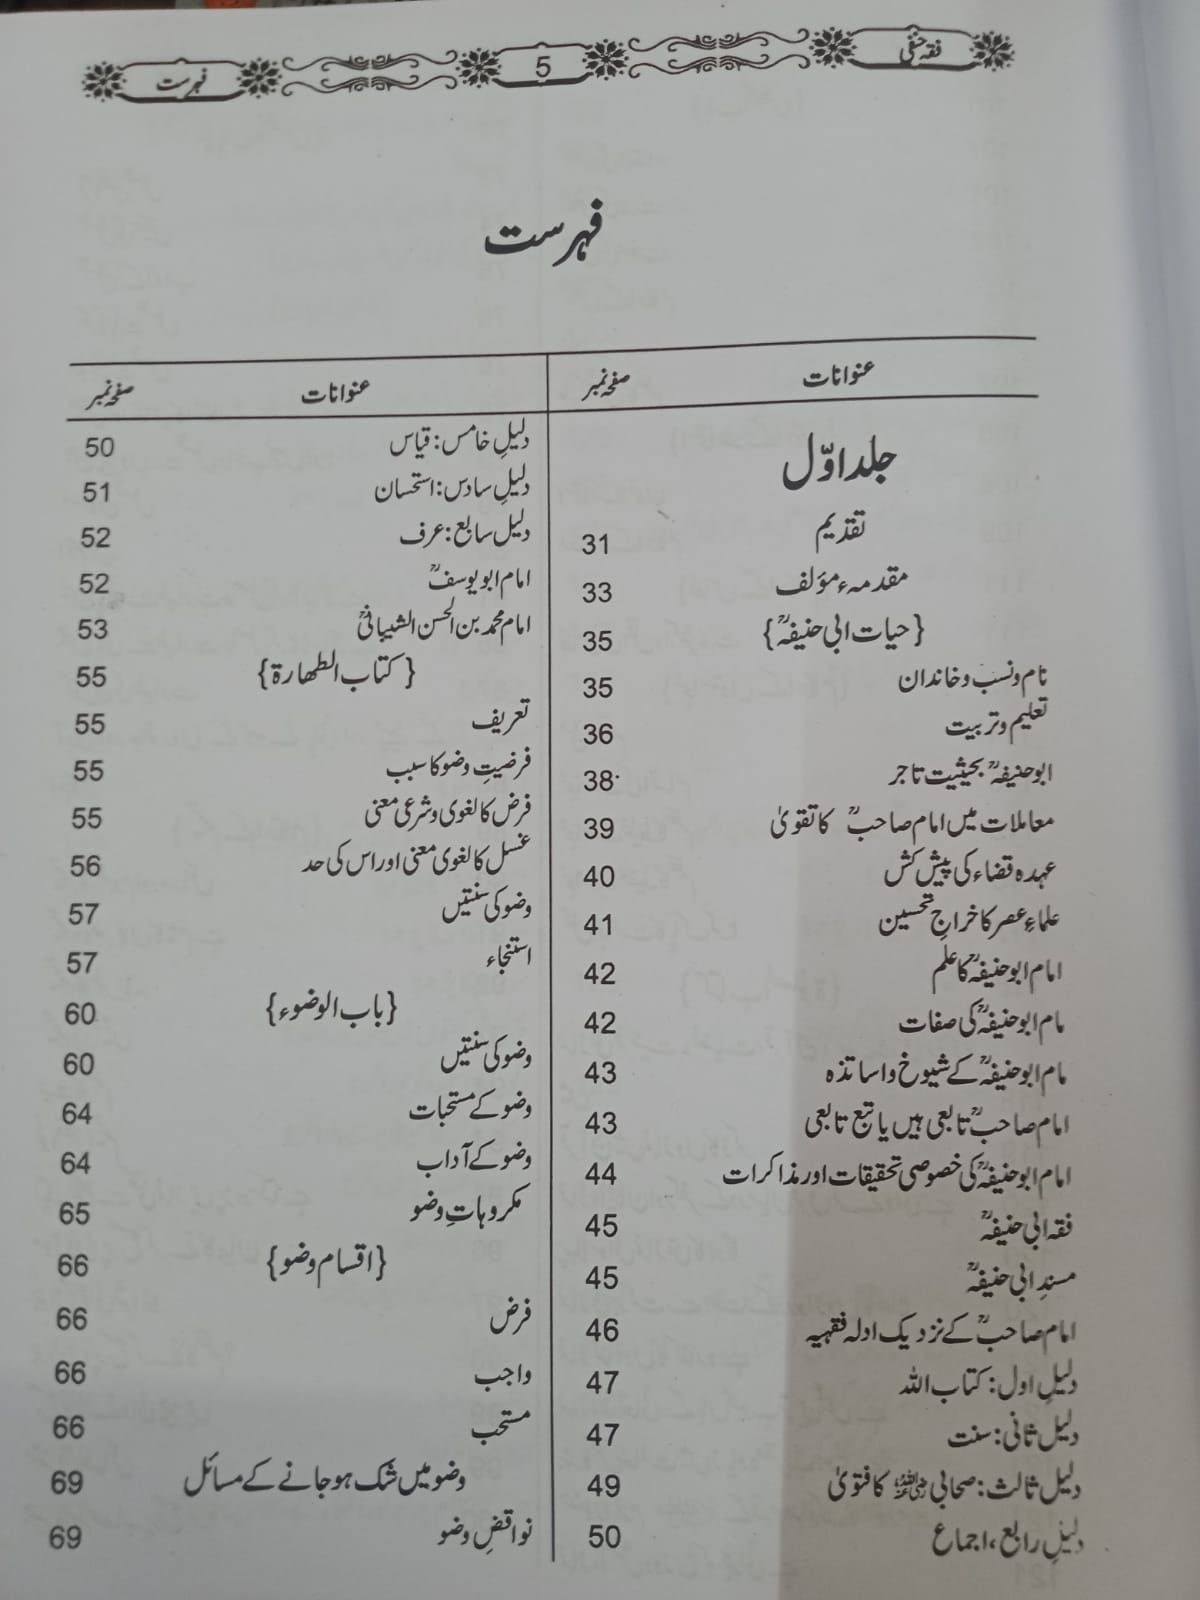 فقہ حنفی
5
فہرست
فہرست
عنوانات صفحہ نمبر
جلد اوّل
تقدیم 31
مقدمہء مؤلف 33
{حیات ابی حنیفہؒ} 35
نام ونسب وخاندان 35
تعلیم وتربیت 36
ابو حنیفہؒ بحیثیت تاجر 38
معاملات میں امام صاحبؒ کا تقویٰ 39
عہدہ قضاء کی پیش کش 40
علماءِ عصر کا خراجِ تحسین 41
امام ابو حنیفہؒ کا علم 42
مام ابو حنیفہؒ کی صفات 42
مام ابو حنیفہؒ کے شیوخ واساتذہ 43
امام صاحبؒ تابعی ہیں یا تبع تابعی 43
امام ابو حنیفہؒ کی خصوصی تحقیقات اور مذاکرات 44
فقہ ابی حنیفہؒ 45
مسندِ ابی حنیفہؒ 45
امام صاحبؒ کے نزدیک ادلہ فقہیہ 46
دلیلِ اول: کتاب اللہ 47
دلیل ثانی: سنت 47
دلیل ثالث: صحابی رضی اللہ عنہ کا فتویٰ 49
دلیلِ رابع، اجماع 50
عنوانات صفحہ نمبر
دلیلِ خامس: قیاس 50
دلیلِ سادس: استحسان 51
دلیل سابع: عرف 52
امام ابو یوسفؒ 52
امام محمد بن الحسن الشیبانیؒ 53
{کتاب الطھارۃ} 55
تعریف 55
فرضیتِ وضو کا سبب 55
فرض کا لغوی وشرعی معنی 55
غسل کا لغوی معنی اور اس کی حد 56
وضو کی سنتیں 57
استنجاء 57
{باب الوضوء} 60
وضو کی سنتیں 60
وضو کے مستحبات 64
وضو کے آداب 64
مکروہاتِ وضو 65
{اقسام وضو} 66
فرض 66
واجب 66
مستحب 66
وضو میں شک ہو جانے کے مسائل 69
نواقضِ وضو 69